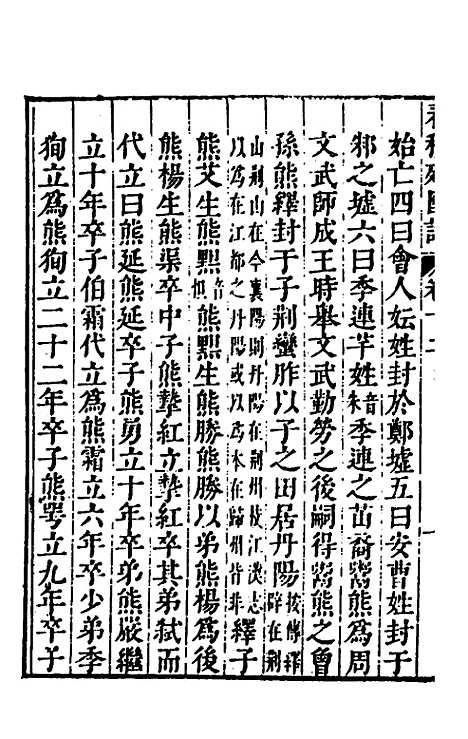 始亡四曰會人妘姓封於鄭墟五曰安曹姓封于
邾之墟六曰季連芈姓音朱季連之苗裔鬻熊爲周
文武師成王時舉文武勤勞之後嗣得鬻熊之曾
孫熊繹封于子荆蠻胙以子之田居丹陽按傳繹辟在荆
山荆山在今襄陽則丹陽在荆州枝江漢志以爲在江都之丹陽或以爲本在歸州皆非繹子
熊艾生熊䵣音怛熊䵣生熊勝熊勝以弟熊楊爲後
熊楊生熊渠卒中子熊摯紅立摯紅卒其弟弒而
代立曰熊延熊延卒子熊勇立十年卒弟熊嚴繼
立十年卒子伯霜代立爲熊霜立六年卒少弟季
狥立爲熊狥立二十二年卒子熊咢立九年卒子